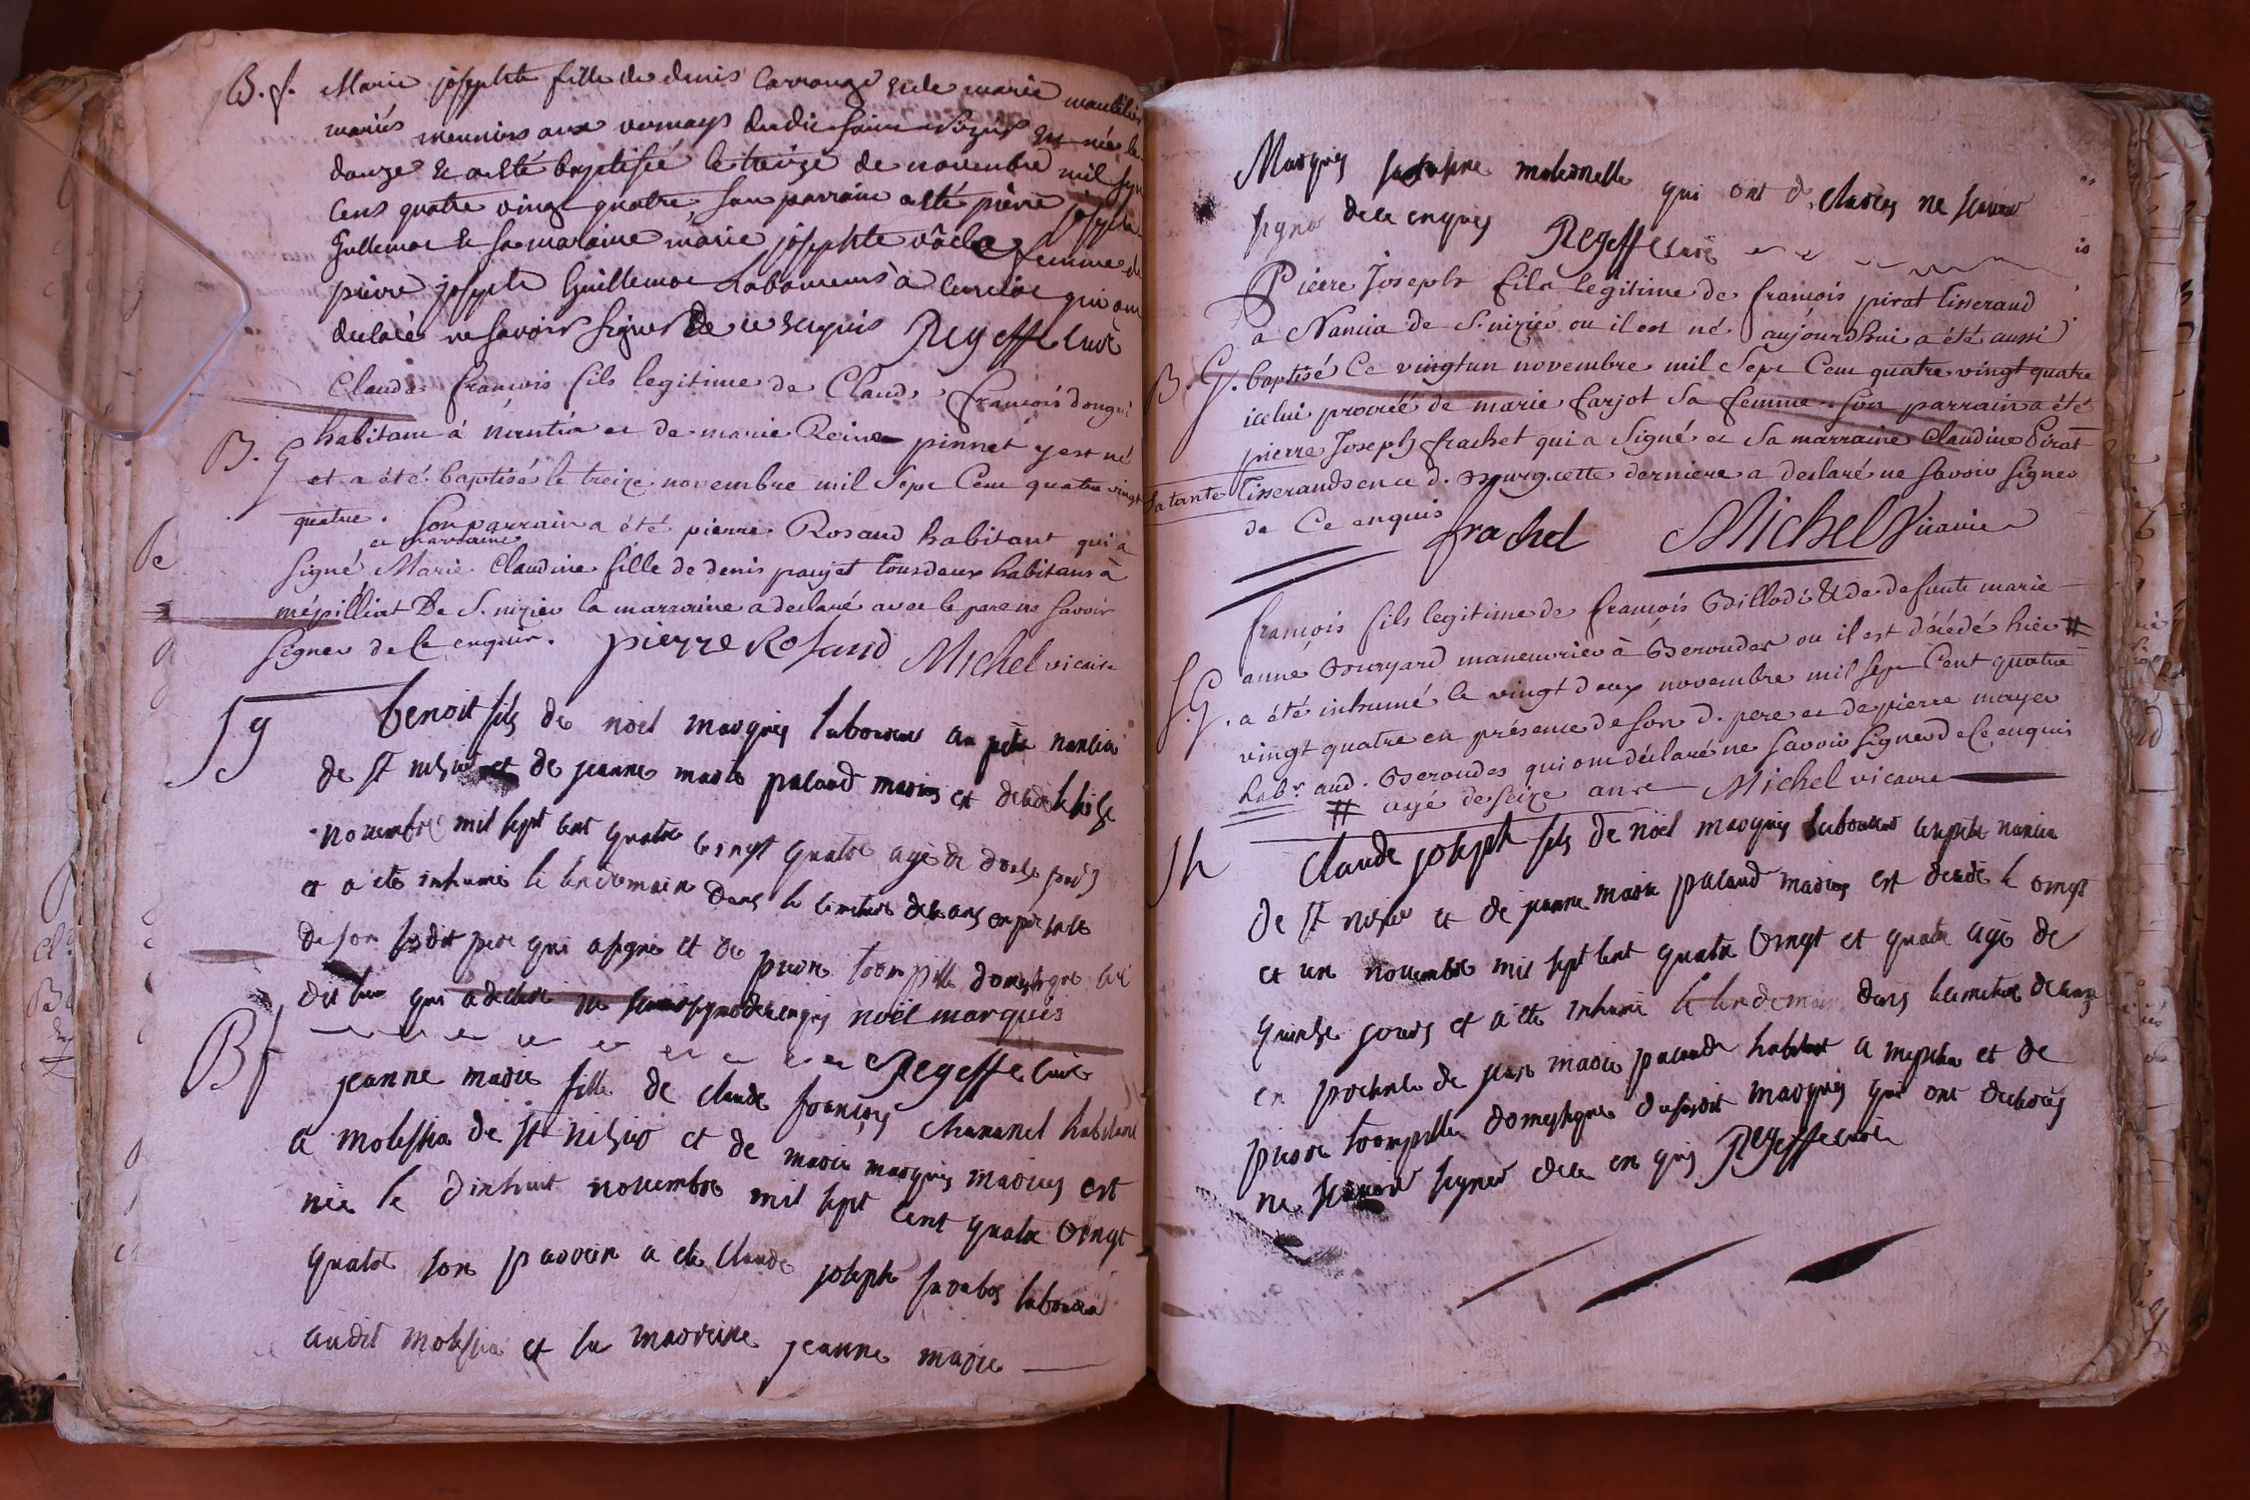 B. f. Marie josephte fille de denis Carronge et de marie
mariés meuniers aux vernays dudit saint Nizier est née le
douze et a esté baptisée le treize de novembre mil sept
cens quatre vingt quatre, son parrain a esté pierre joseph
Guillemot et sa maraine marie josephte femme de
pierre joseph Guillemot laboureurs à qui ont
declaré ne savoir signer de ce enquis Regeffe curé
Claude françois fils legitime de Claude françois
habitant à nantia et de marie Reine pinnet y est né
B. G et a été baptisé le treize novembre mil sept Cent quatre vingt
quatre. son parrain a été pierre Rosand habitant qui a
et marraine
signé Marie Claudine fille de denis paujet tous deux habitans à
mépilliat De S. nizier la marraine a declaré avec le pere ne savoir
signer de Ce enquis. pierre Rosand Michel vicaire
S g benoit fils de noel marquis laboureur au petit nancia
de st nizier et de jeanne marie palaud mariés est decedé le treize
novembre mil sept cent quatre vingt quatre agé de douze jours
et a eté inhumé le lendemain dans le cimetiere de ceans en presence
de son susdit pere qui a signé et de pierre trompille domestique
du lieu qui a declaré ne savoir signer de ce enquis noël marquis
Regeffe curé
B f jeanne marie fille de claude françois chananel habitant
a molissia de st nizier et de marie marquis mariés est
née le dixhuit novembre mil sept cent quatre vingt
quatre son parrein a eté claude joseph laboureur
audit molissia et sa marreine jeanne marie
Marquis maternelle qui ont declarés ne scavoir
signer de ce enquis Regeffe curé
Pierre Joseph fils legitime de françois pirat tisserand
a Nancia de S. nizier ou il est né aujourdhui a été aussi
B. G. baptisé Ce vingt un novembre mil Sept Cent quatre vingt quatre
icelui procréé de marie farjot sa femme. son parrain a été
pierre Joseph frachet qui a signé et sa marraine Claudine Pirat
sa tante tisserands en ce d. Bourg. cette derniere a declaré ne savoir signer
de Ce enquis frachet Michel Vicaire
françois fils legitime de françois Billod et de defunte marie
anne maneuvrier à Beroudes ou il est décédé hier #
S. G. a été inhumé le vingt deux novembre mil sept Cent quatre
vingt quatre en présence de son d. pere et de pierre mayer
habt. aud. Beroudes qui ont déclaré ne savoir signer de Ce enquis
# agé de seize ans Michel vicaire
S h Claude joseph fils de noel marquis laboureur au petit nancia
de st nizier et de jeanne marie palaud mariés est decedé le vingt
et un novembre mil sept cent quatre vingt et quatre agé de
quinze jours et a eté inhumé le lendemain dans le cimetiere de ceans
en presence de jean marie palaud habitant a et de
pierre trompille domestique du susdit marquis qui ont declarés
ne scavoir signer de ce enquis Regeffe curé